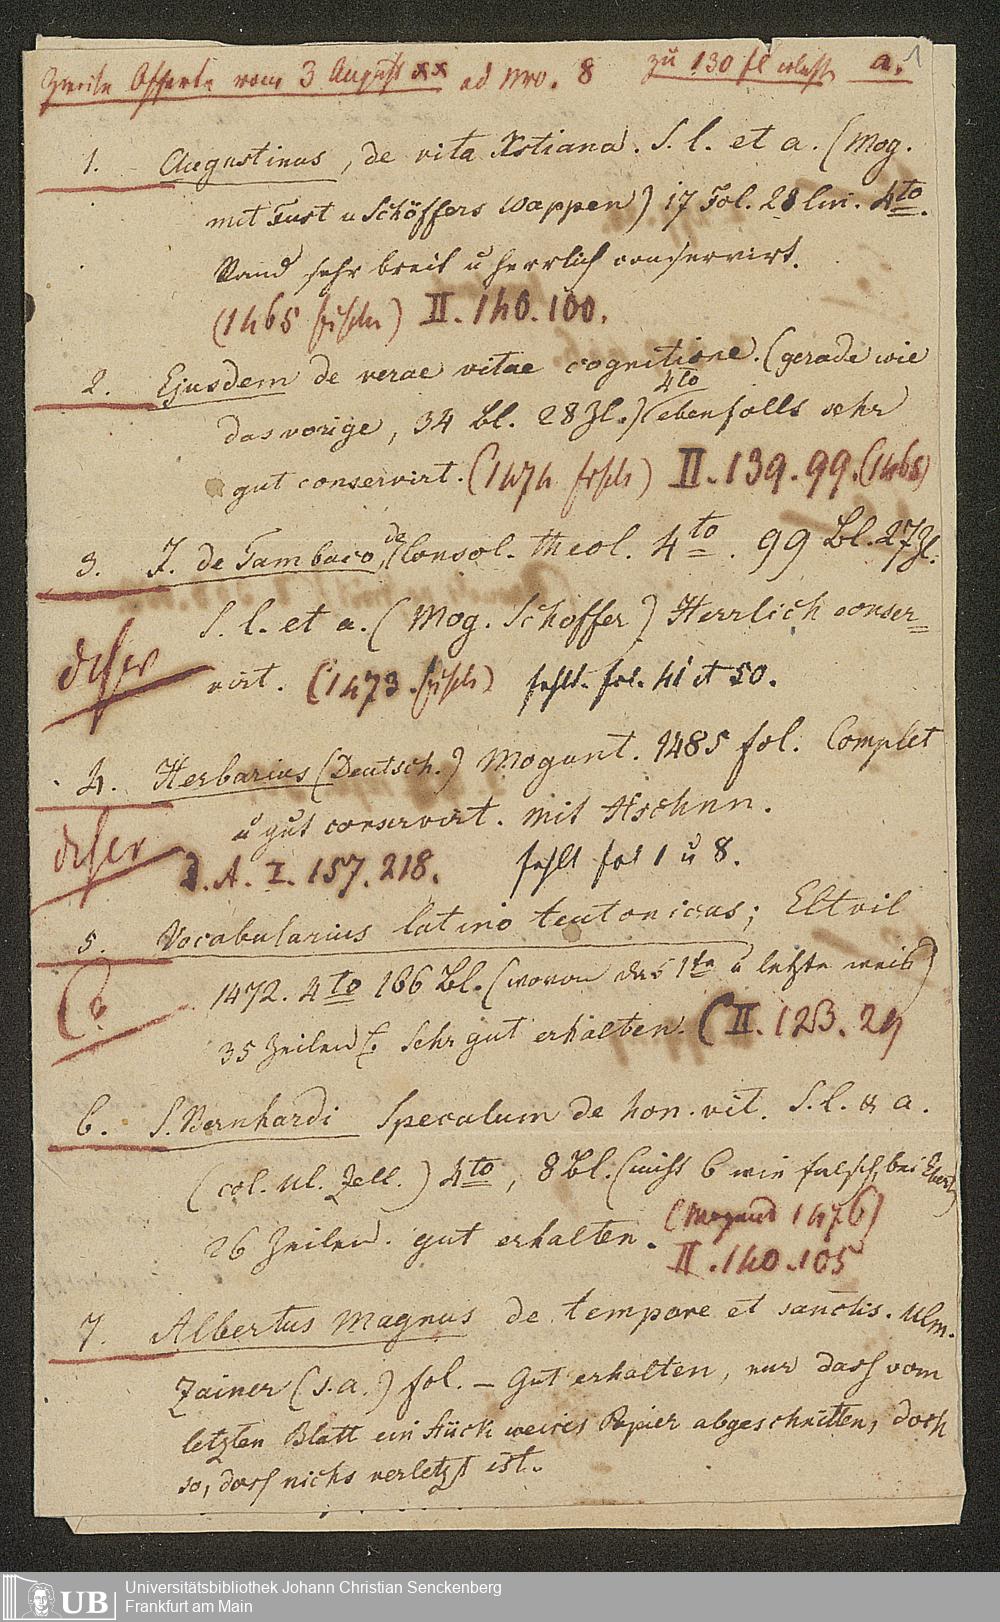 Zweite Offerte vom 3 August xx ad Nro. 8 zu 130 fl erlass a. 1
1. Augustinus, de vita Xstiana. S. l. et a. (Mog.
mit Fust u Schöffers Wappen) 17 Fol. 28 lin. 4to.
Rand sehr breit u herrlich conservirt.
(1465 fischr) II. 140. 100.
2. Ejusdem de verae vitae cognitione. (gerade wie
das vorige, 34 Bl. 28 Zl.) 4to ebenfalls sehr
gut conservirt. (1474 fischr) II. 139. 99. (1465)
3. J. de Tambaco, de Consol. theol. 4to. 99 Bl. 27 Zl.
S. l. et a. (Mog. Schoffer) Herrlich conser=
virt. (1473 fischr) fehlt fol. 41 et 50.
4. Herbarius (Deutsch.) Mogunt. 1485 fol. Complet
u gut conservirt. mit Hschnn.
D. A. I. 157. 218. fehlt fol 1 u 8.
5. Vocabularius latino teutonicus; Eltvil
1472. 4to 166 Bl. (wovon das 1te u letzte weis)
35 Zeilen Sehr gut erhalten. (II. 123. 24
6. S. Bernhardi Speculum de hon. vit. S. l. & a.
(col. Ul. Zell.) 4to, 8 Bl. (nicht 6 wie falsch bei Ebert)
26 Zeilen. gut erhalten. (Mogunt 1476)
II. 140. 105
7. Albertus Magnus de tempore et sanctis. Ulm.
Zainer (s. a.) fol. – Gut erhalten, nur dass vom
letzten Blatt ein Stück weises Papier abgeschnitten, doch
so, dass nichs verletzt ist.
UB Universitätsbibliothek Johann Christian Senckenberg
Frankfurt am Main